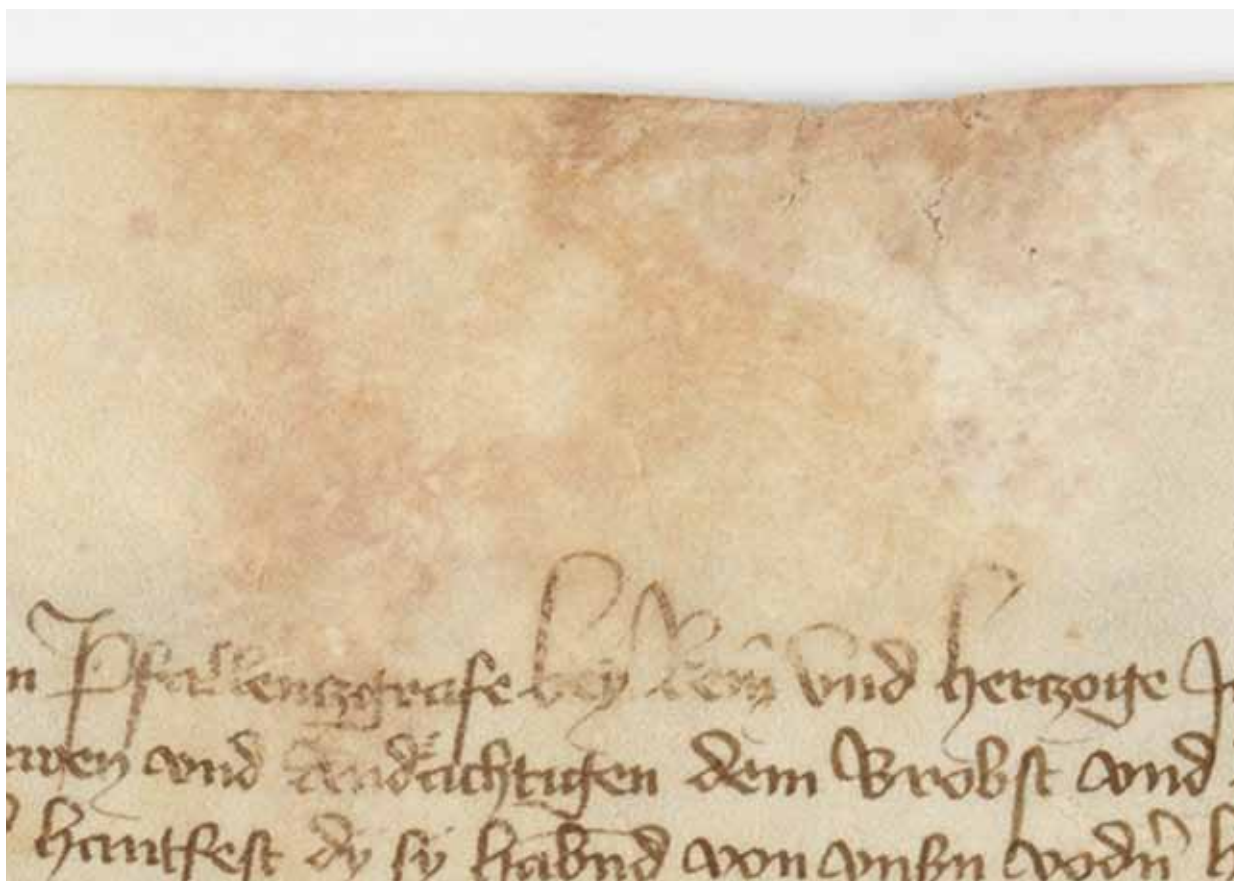 n Pfallenczgrafe bey Rein vnd herczoge J
ewen vnd andächtigen dem Brobst vnd
hantfest dÿ sÿ habnd von vnsn vodn h